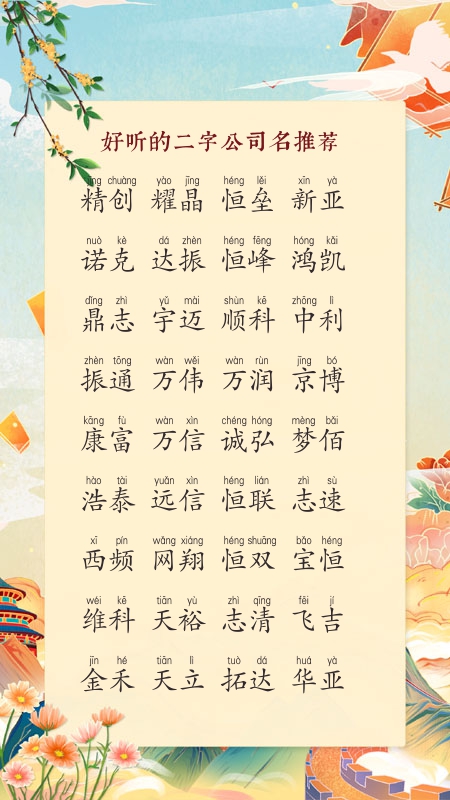 好听的二字公司名推荐
jīng chuàng yào jīng héng lěi xīn yà
精创 耀晶 恒垒 新亚
nuò kè dá zhèn héng fēng hóng kǎi
诺克 达振 恒峰 鸿凯
dǐng zhì yǔ mài shùn kē zhōng lì
鼎志 宇迈 顺科 中利
zhèn tōng wàn wěi wàn rùn jīng bó
振通 万伟 万润 京博
kāng fù wàn xìn chéng hóng mèng bǎi
康富 万信 诚弘 梦佰
hào tài yuǎn xìn héng lián zhì sù
浩泰 远信 恒联 志速
xī pín wǎng xiáng héng shuāng bǎo héng
西频 网翔 恒双 宝恒
wéi kē tiān yù zhì qīng fēi jí
维科 天裕 志清 飞吉
jīn hé tiān lì tuò dá huá yà
金禾 天立 拓达 华亚